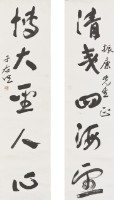 清四海雲
振康先生正
博大聖人心
于右任